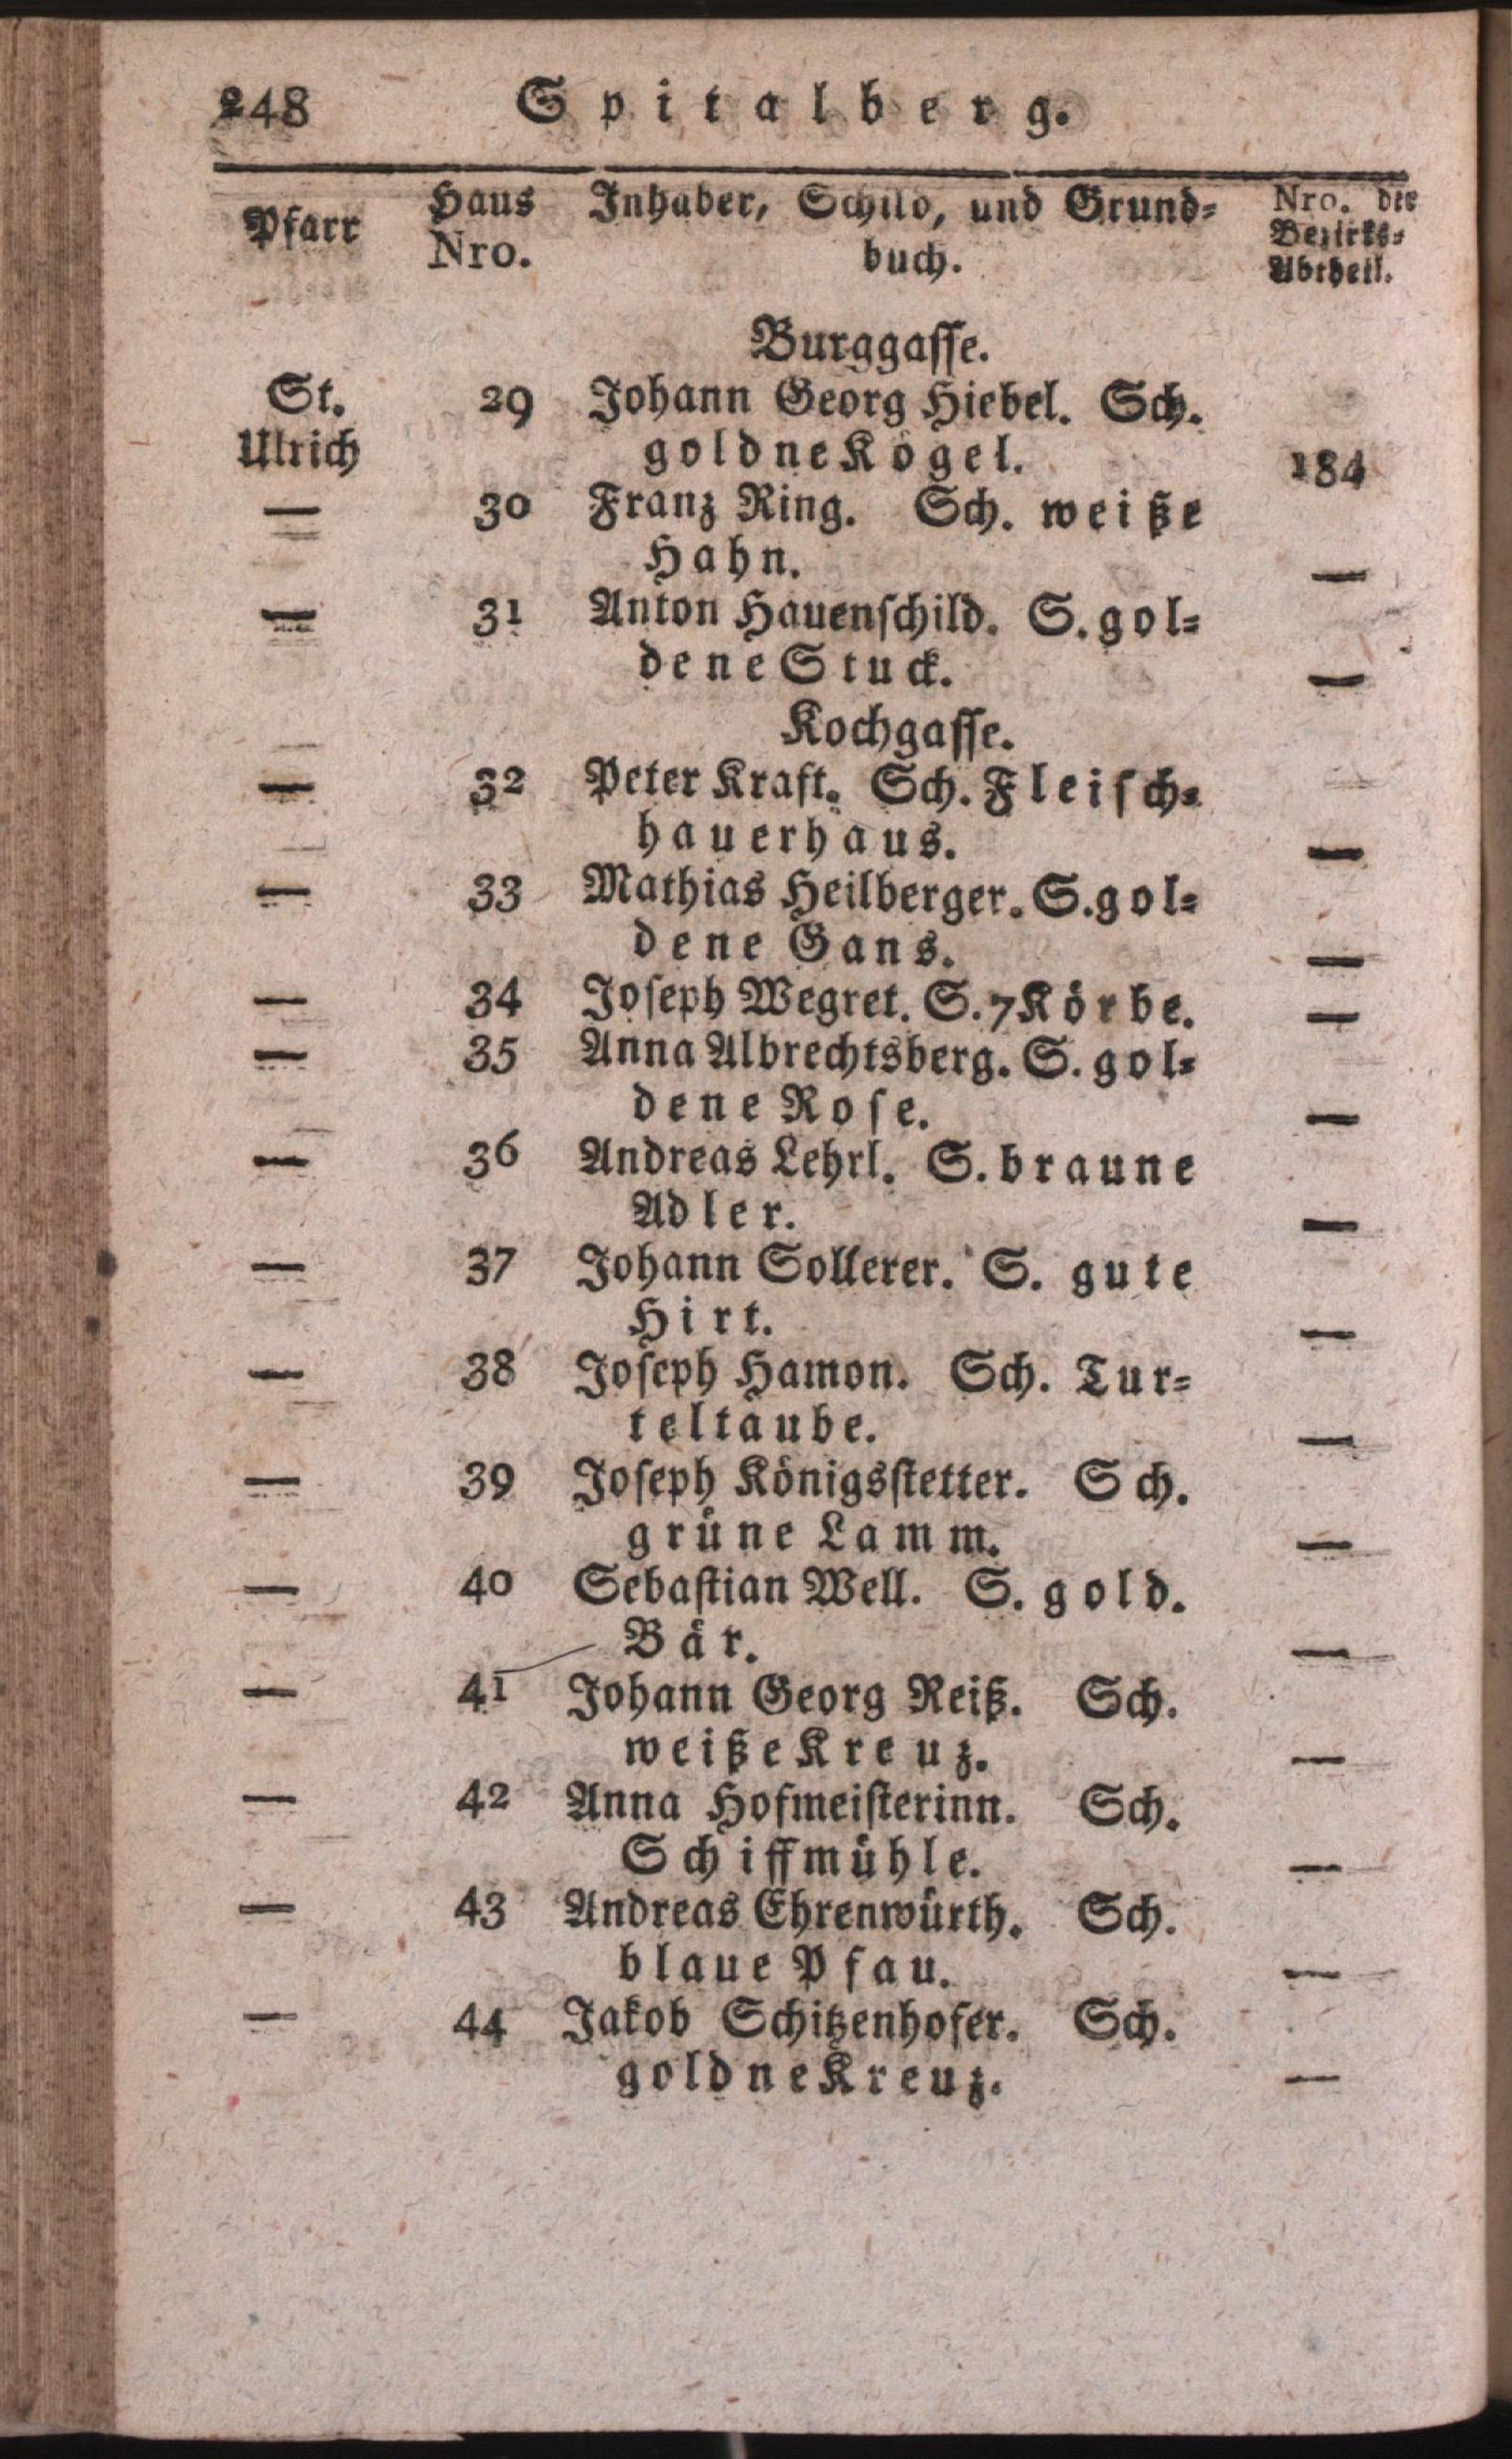 248 Spitalberg.
Pfarr Haus Nro. Inhaber, Schild, und Grund= buch. Nro. der Bezirks= Abtheil.
Burggasse.
St. 29 Johann Georg Hiebel. Sch.
Ulrich goldne Kögel. 184
— 30 Franz Ring. Sch. weiße
Hahn. —
— 31 Anton Hauenschild. S. gol=
dene Stuck. —
Kochgasse.
— 32 Peter Kraft. Sch. Fleisch=
hauerhaus. —
— 33 Mathias Heilberger. S. gol=
dene Gans. —
— 34 Joseph Wegret. S. 7 Körbe. —
— 35 Anna Albrechtsberg. S. gol=
dene Rose. —
— 36 Andreas Lehrl. S. braune
Adler. —
— 37 Johann Sollerer. S. gute
Hirt. —
— 38 Joseph Hamon. Sch. Tur=
teltaube. —
— 39 Joseph Königsstetter. Sch.
grüne Lamm. —
— 40 Sebastian Well. S. gold.
Bär. —
— 41 Johann Georg Reiß. Sch.
weiße Kreuz. —
— 42 Anna Hofmeisterinn. Sch.
Schiffmühle. —
— 43 Andreas Ehrenwürth. Sch.
blaue Pfau. —
— 44 Jakob Schitzenhofer. Sch.
goldne Kreuz. —